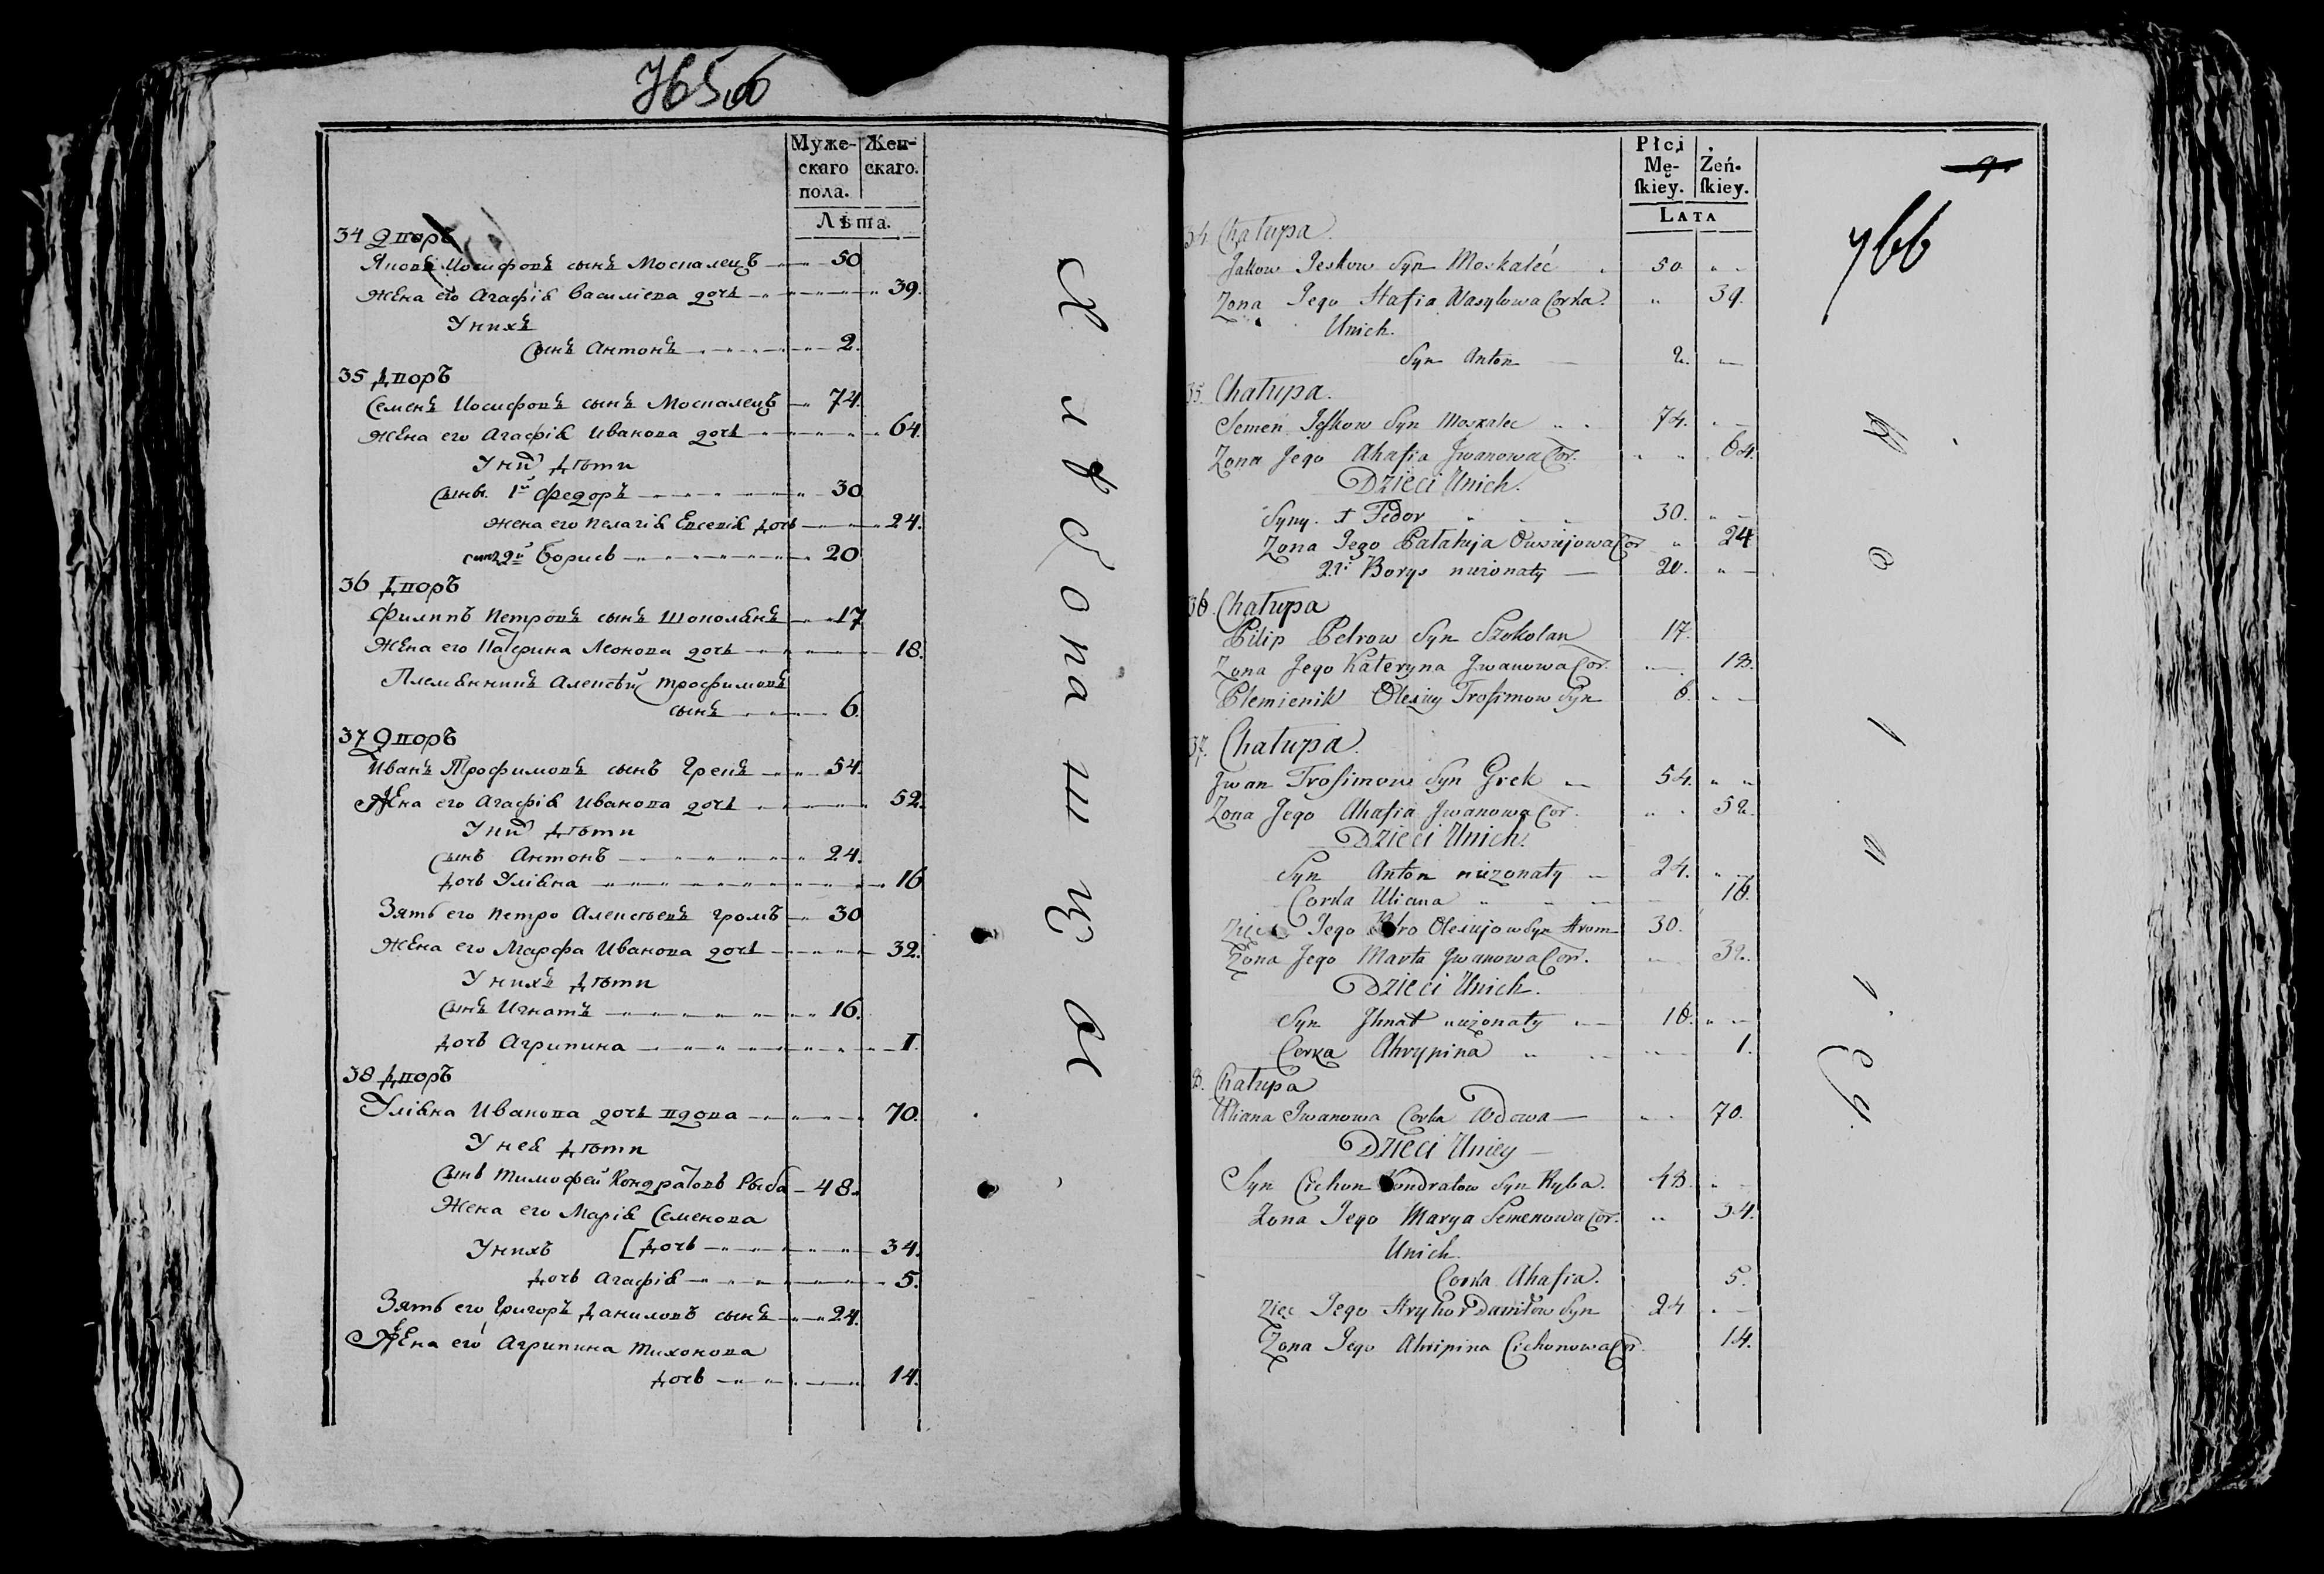 765об
Муже-
скаго
пола.
Жен-
скаго.
Лѣта.
34 Дворъ
Яковъ Иосифовъ сынъ Москалецъ 50
Жена его Агафія Василіева дочь 39.
У нихъ
Сынъ Антонъ 2.
35 Дворъ
Семенъ Иосифовъ сынъ Москалецъ 74.
Жена его Агафія Иванова дочь 64.
У них дѣти
Сыны 1й Федоръ 30
жена его Пелагія Евсевія дочь 24.
сынъ 2й Борисъ 20
36 Дворъ
Филипъ Петровъ сынъ Шоколянъ 17
Жена его Катерина Леонова дочь 18.
Племянникъ Алексѣй Трофимовъ
сынъ 6.
37 Дворъ
Иванъ Трофимовъ сынъ Грекъ 54.
Жена его Агафія Иванова дочь 52.
У них дѣти
Сынъ Антонъ 24.
дочь Уліяна 16
Зять его Петро Алексѣевъ Громъ 30
Жена его Марфа Иванова дочь 32.
У нихъ дѣти
Сынъ Игнатъ 16.
дочь Агрипина 1.
38 Дворъ
Уліяна Иванова дочь вдова 70.
У нея дѣти
Сынъ Тимофей Кондратовъ Рыба 48.
Жена его Марія Семенова
У нихъ [дочь 34.
дочь Агафія 5.
Зять его Григоръ Даниловъ сынъ 24.
Жена его Агрипина Тихонова
дочь 14.
Płci
Mę-
ſkiey.
Żeń-
ſkiey.
LATA
9.
766
34 Chałupa.
Jakow Jeskow Syn Moskaleć 50.
Zona Jego Hafia Wasylowa Corka. 39.
Unich.
Syn Anton 2.
35. Chałupa.
Semen Jeſkow Syn Moskalec 74.
Zona Jego Ahafia Jwanowa Cor. 64.
Dzieci Unich.
Syny. 1 Fedor 30.
Zona Jego Pałahija Owsijowa Cor 24
2gi Borys nieżonaty 20.
36. Chałupa
Pilip Petrow Syn Szokolan 17.
Zona Jego Kateryna Jwanowa Cor. 18.
Plemienik Olexiy Trofimow Syn 6.
37. Chałupa.
Jwan Trofimow Syn Grek 54.
Zona Jego Ahafia Jwanowa Cor. 52.
Dzieci Unich.
Syn Anton nieżonaty 24.
Corka Uliana 16.
Zięć Jego Petro Olexijow Syn Hrom 30.
Zona Jego Marta Jwanowa Cor. 32.
Dzieci Unich.
Syn Jhnat nieżonaty 16.
Corka Ahrypina 1.
8. Chałupa
Uliana Jwanowa Corka Wdowa 70.
Dzieci Uniey
Syn Cichon Kondratow Syn Ryba. 48.
Zona Jego Marya Semenowa Cor. 34.
Unich.
Corka Ahafia. 5.
Zięć Jego Hryhor Daniłow Syn 24
Zona Jego Ahripina Cichonowa Cor. 14.